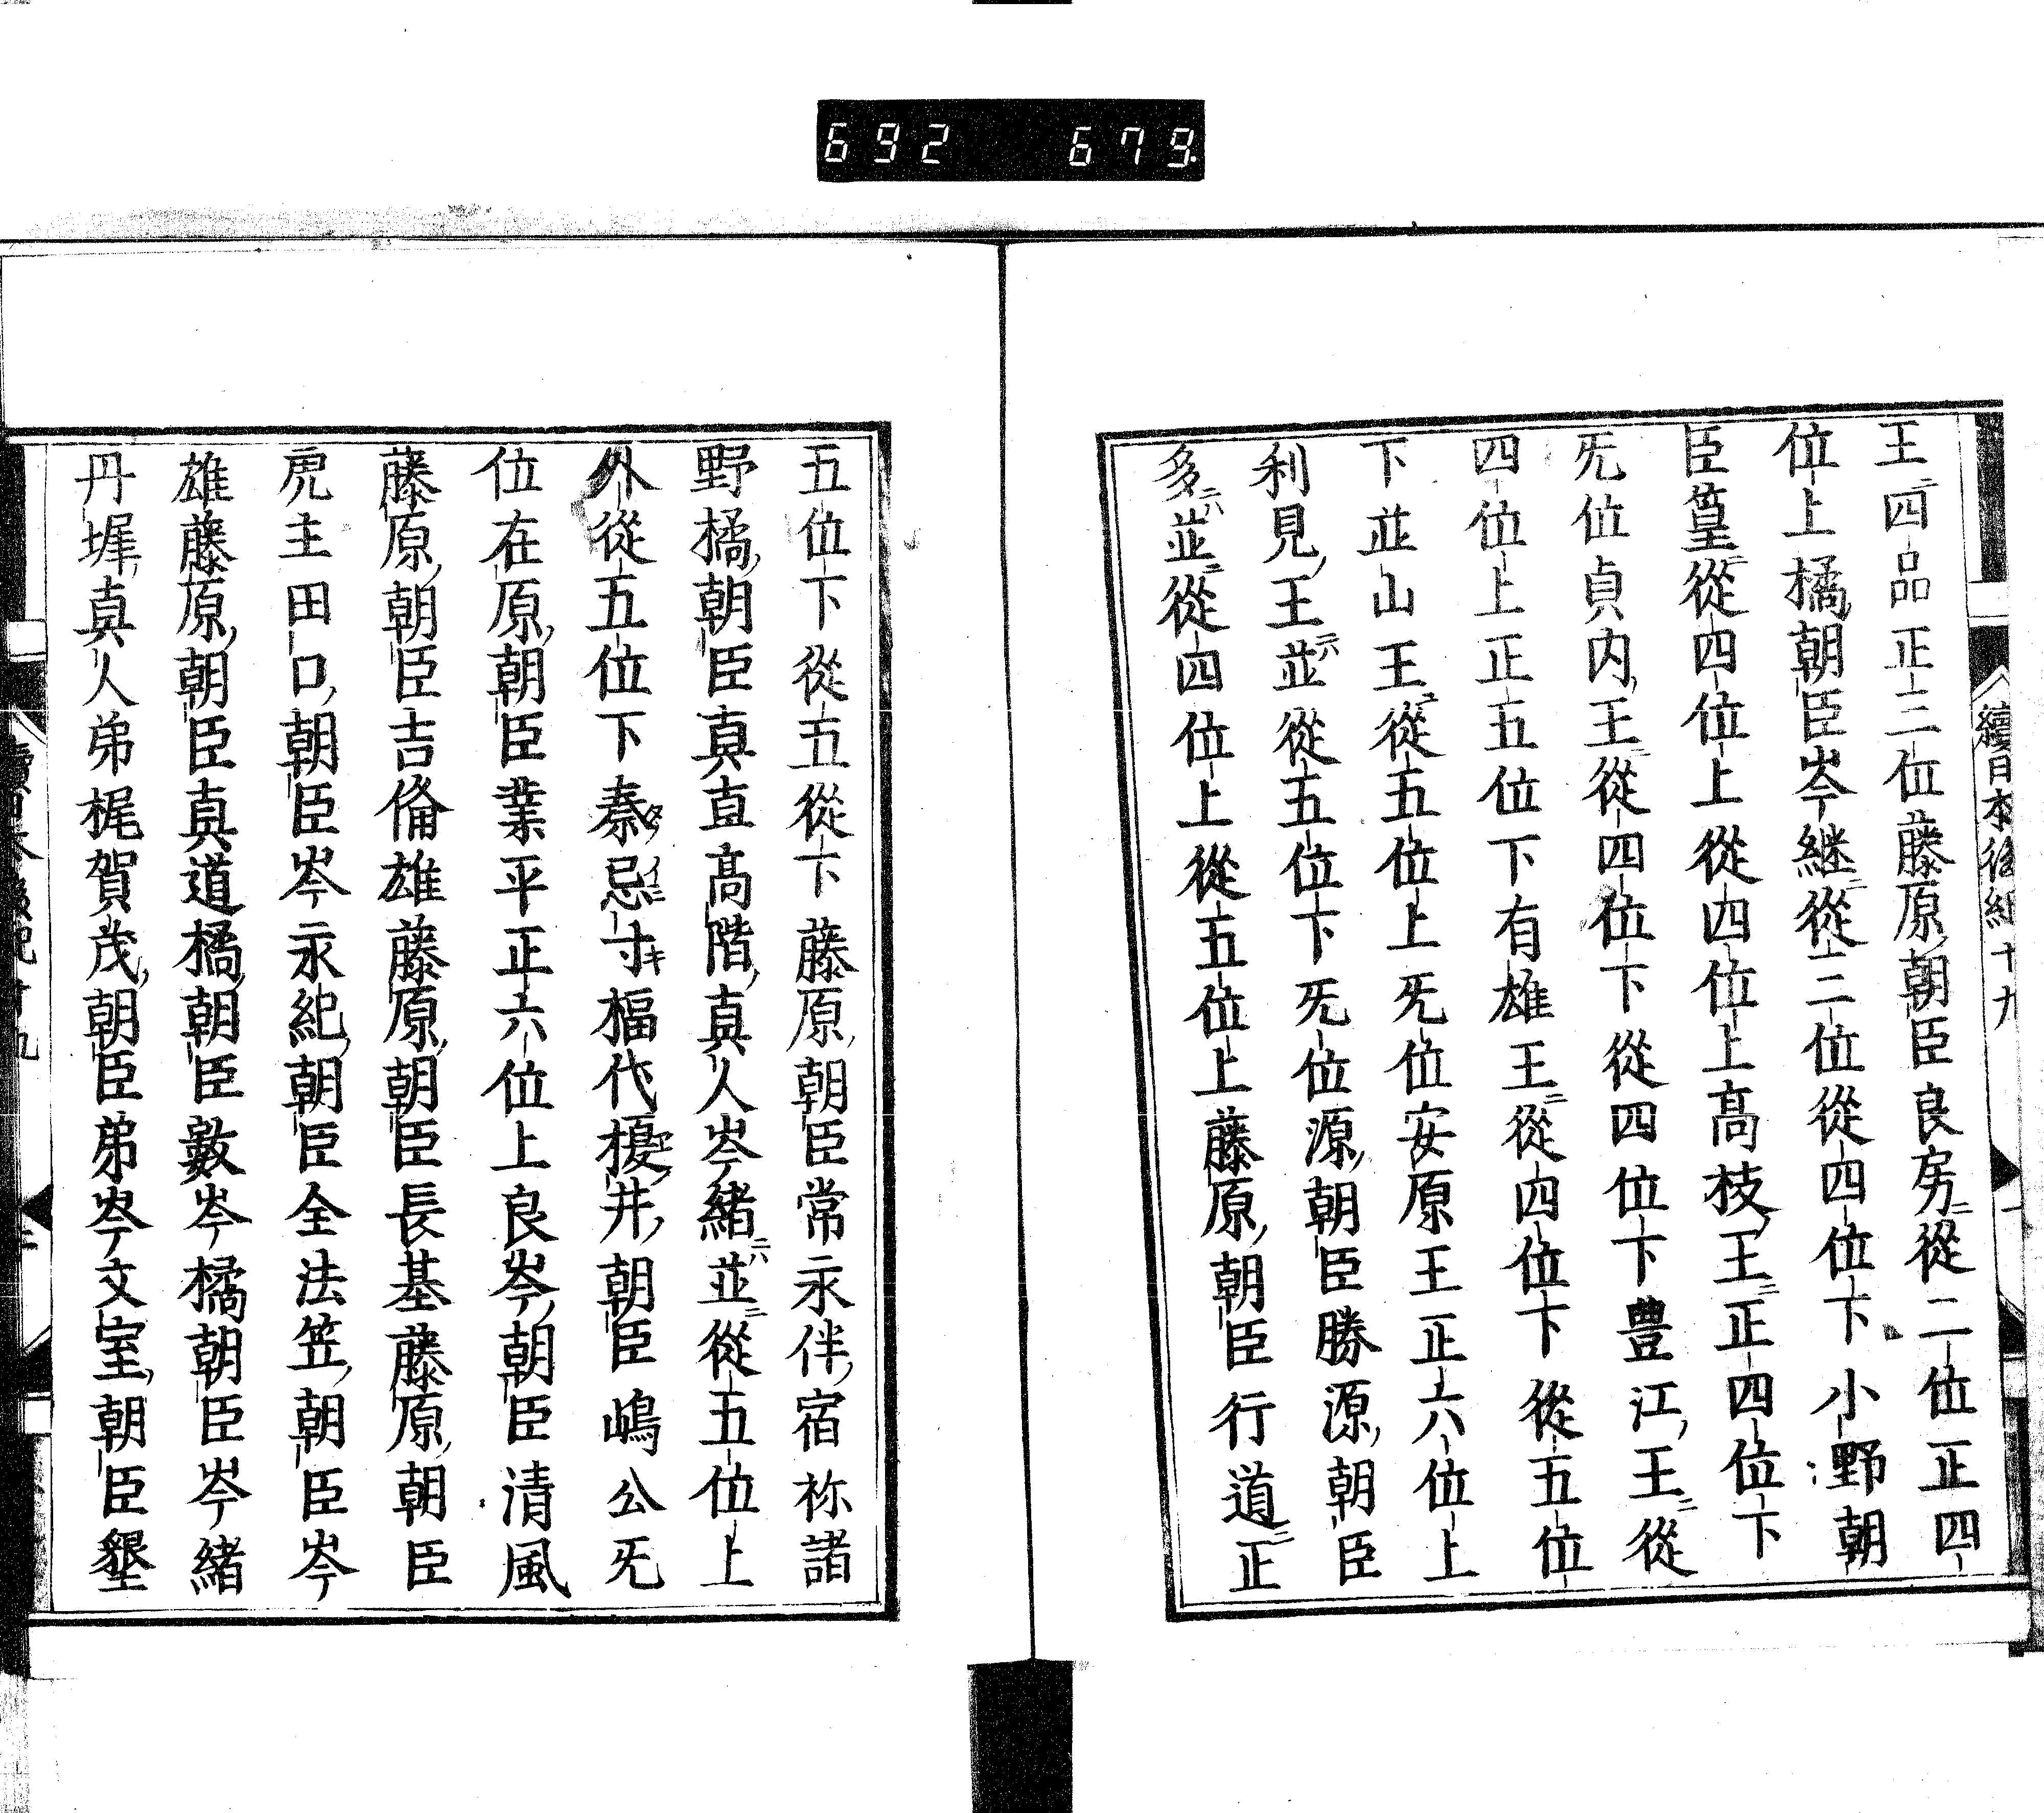 692 679.
續日本後紀十九
王四品正三位藤原朝臣良房從二位正四
位上橘朝臣岑継從三位從四位下小野朝
臣篁從四位上從四位上髙枝王正四位下
旡位貞内王從四位下從四位下豊江王從
四位上正五位下有雄王從四位下從五位
下並山王從五位上旡位安原王正六位上
利見王並從五位下旡位源朝臣勝源朝臣
多並從四位上從五位上藤原朝臣行道正
五位下從五從下藤原朝臣常永伴宿祢諸
野橘朝臣真直髙階真人岑緒並從五位上
外從五位下秦忌寸福代榎井朝臣嶋公旡
位在原朝臣業平正六位上良岑朝臣清風
藤原朝臣吉備雄藤原朝臣長基藤原朝臣
虎主田口朝臣岑永紀朝臣全法笠朝臣岑
雄藤原朝臣真道橘朝臣數岑橘朝臣岑緒
丹墀真人弟梶賀茂朝臣弟岑文室朝臣墾